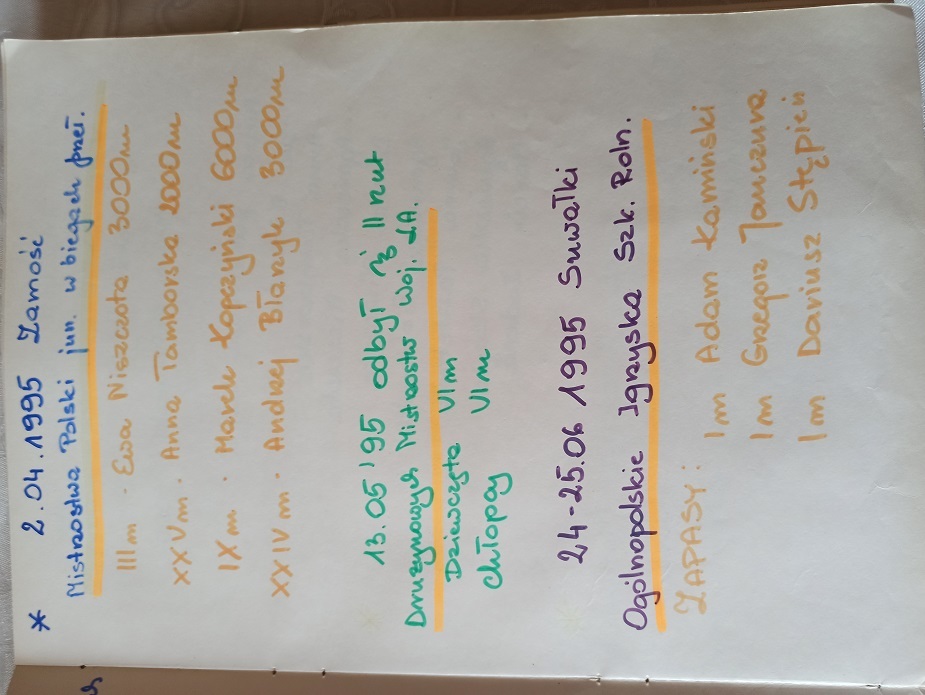 * 2.04.1995 Zamość
Mistrzostwa Polski jun. w biegach przeł.
IIIm · Ewa Niszczota 3000m
XXVm · Anna Tamborska 2000m
IXm · Marek Kopczyński 6000m
XXIVm · Andrzej Błaszyk 3000m
13.05'95 odbył się II rzut
Drużynowych Mistrzostw Woj. LA.
Dziewczęta VIm
chłopcy VIm
24-25.06 1995 Suwałki
Ogólnopolskie Igrzyska Szk. Roln.
ZAPASY: Im Adam Kamiński
Im Grzegorz Janczura
Im Dariusz Stępień